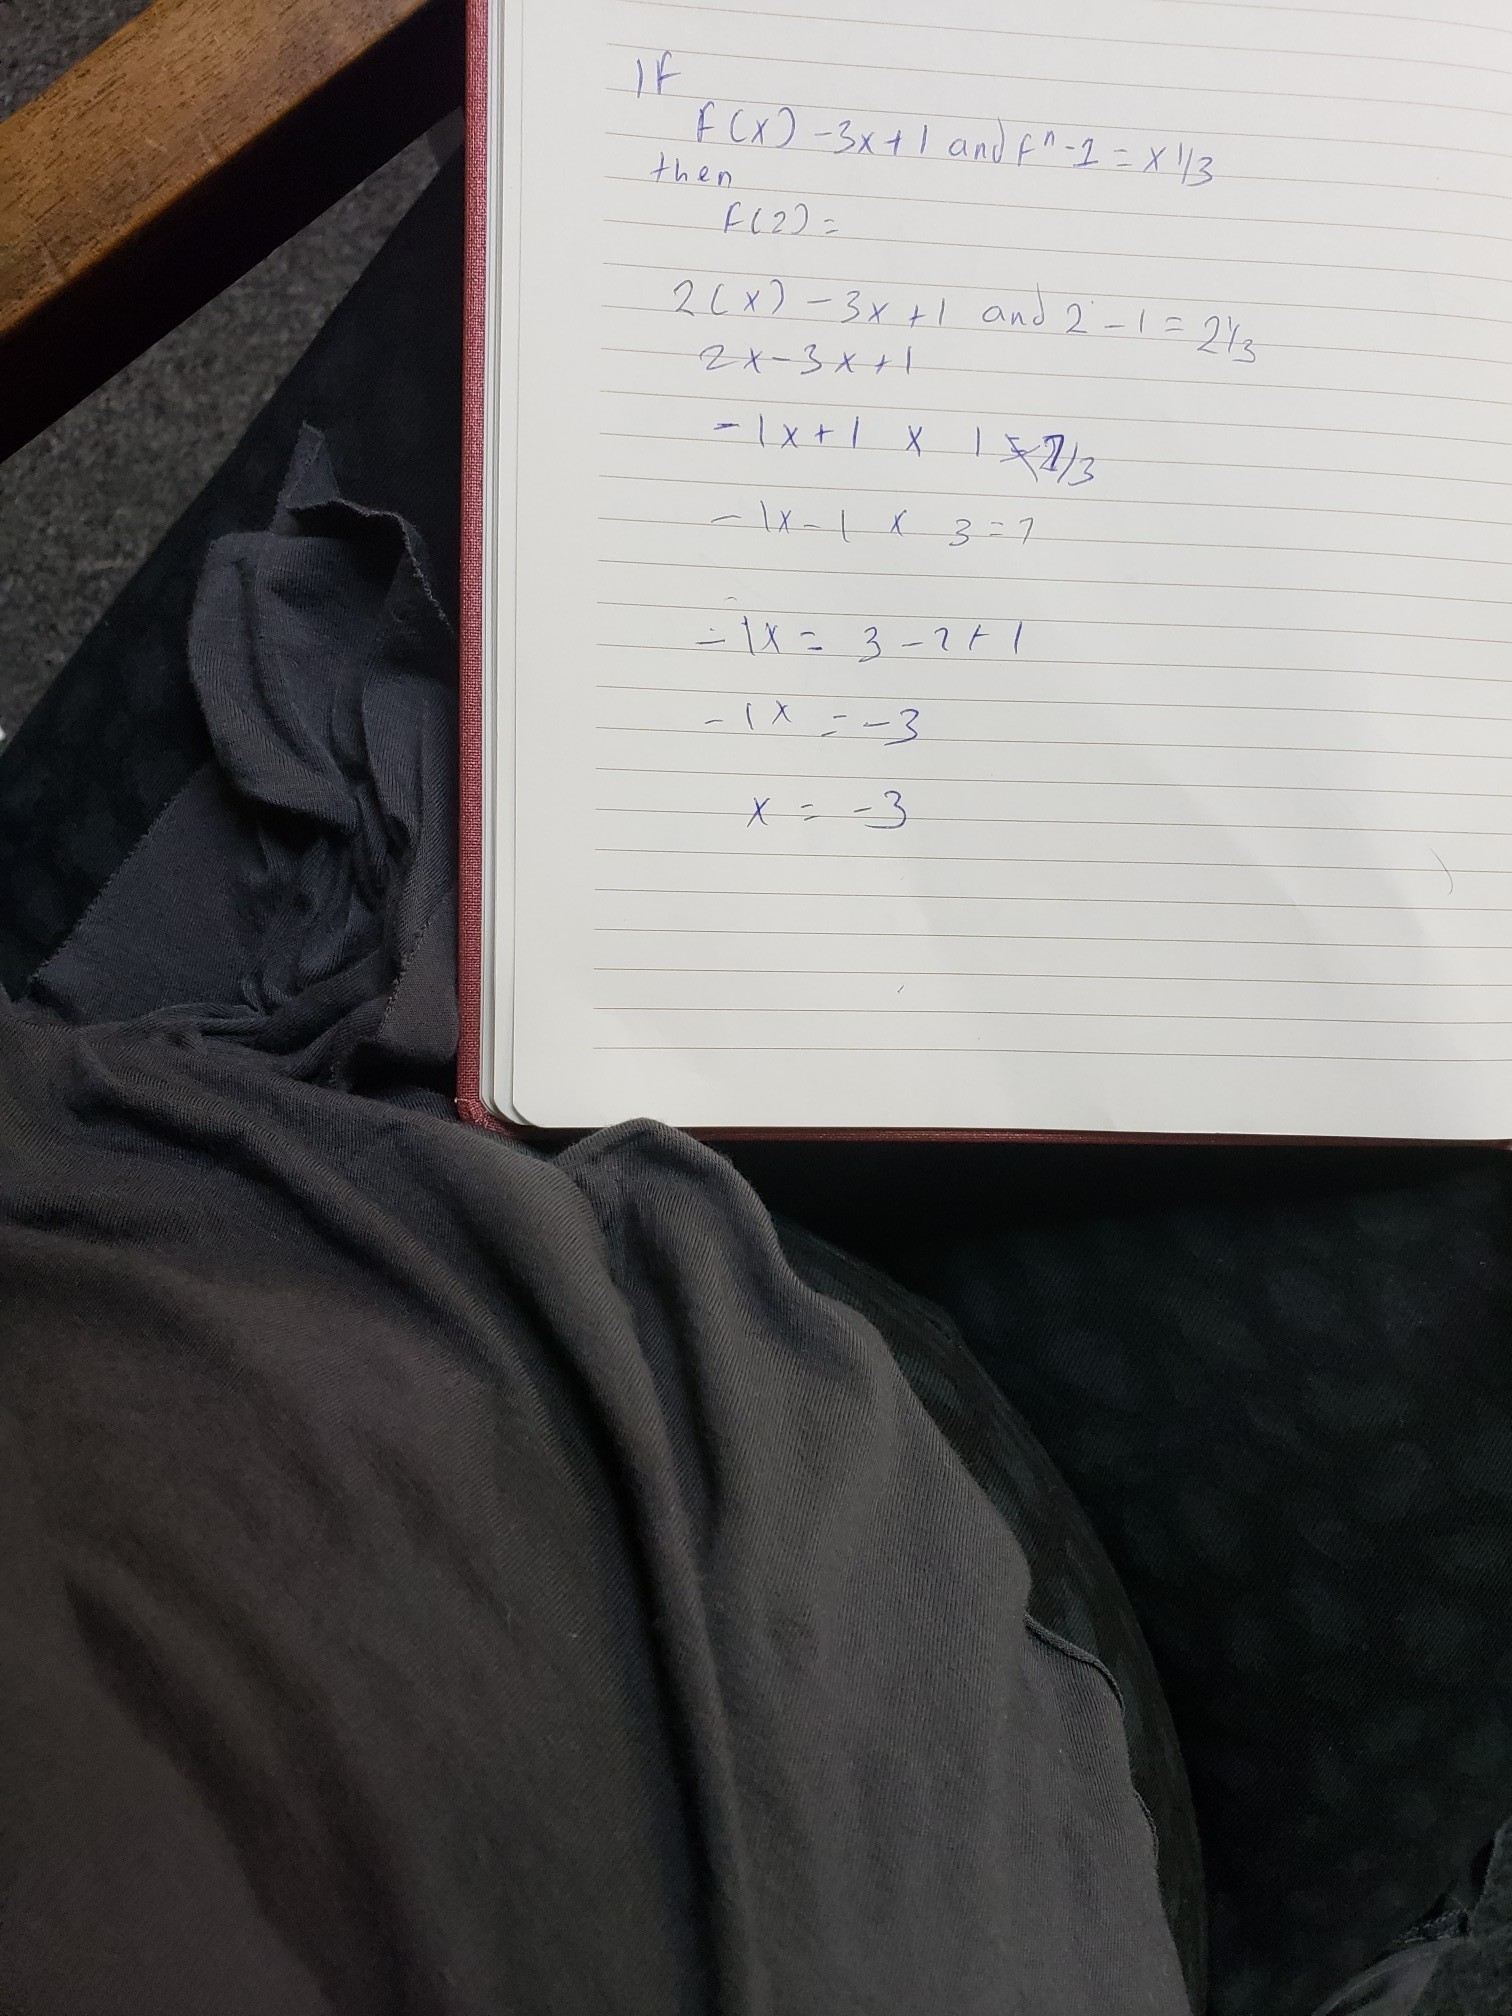 If
f(x) -3x+1 and fⁿ-1 = x 1/3
then
f(2) =
2(x) - 3x +1 and 2 - 1 = 2 1/3
2x-3x+1
-1x+1 x 1 7/3
-1x-1 x 3=7
-1x = 3-7+1
-1x = -3
x = -3